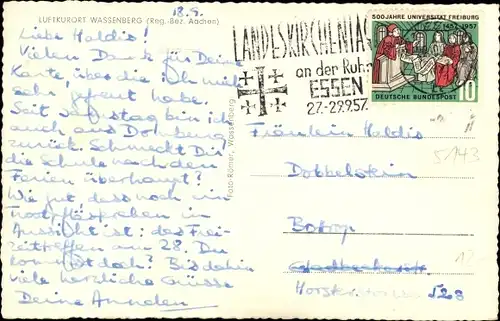 18.9.
LUFTKURORT WASSENBERG (Reg. Bez. Aachen)
Liebe Haldis!
Vielen Dank für Deine
Karte, über die ich mich
sehr gefreut habe.
Seit bin ich
auch aus
zurück. Schmeckt Dir
die Schule nach den
Ferien überhaupt?
Wie gut, dass noch ein
in
Aussicht ist: das Frei-
zeittreffen am 28. Du
kommst doch? Bis dahin
viele herzliche Grüsse
Deine
Foto-Römer, Wassenberg
LANDESKIRCHENTAG
an der Ruhr
ESSEN
27.-29.9.57
500 JAHRE UNIVERSITÄT FREIBURG
1457 1957
DEUTSCHE BUNDESPOST
10
Fräulein Haldis
5143
Dobbelstein
Bottrop
12.-
Horster 528